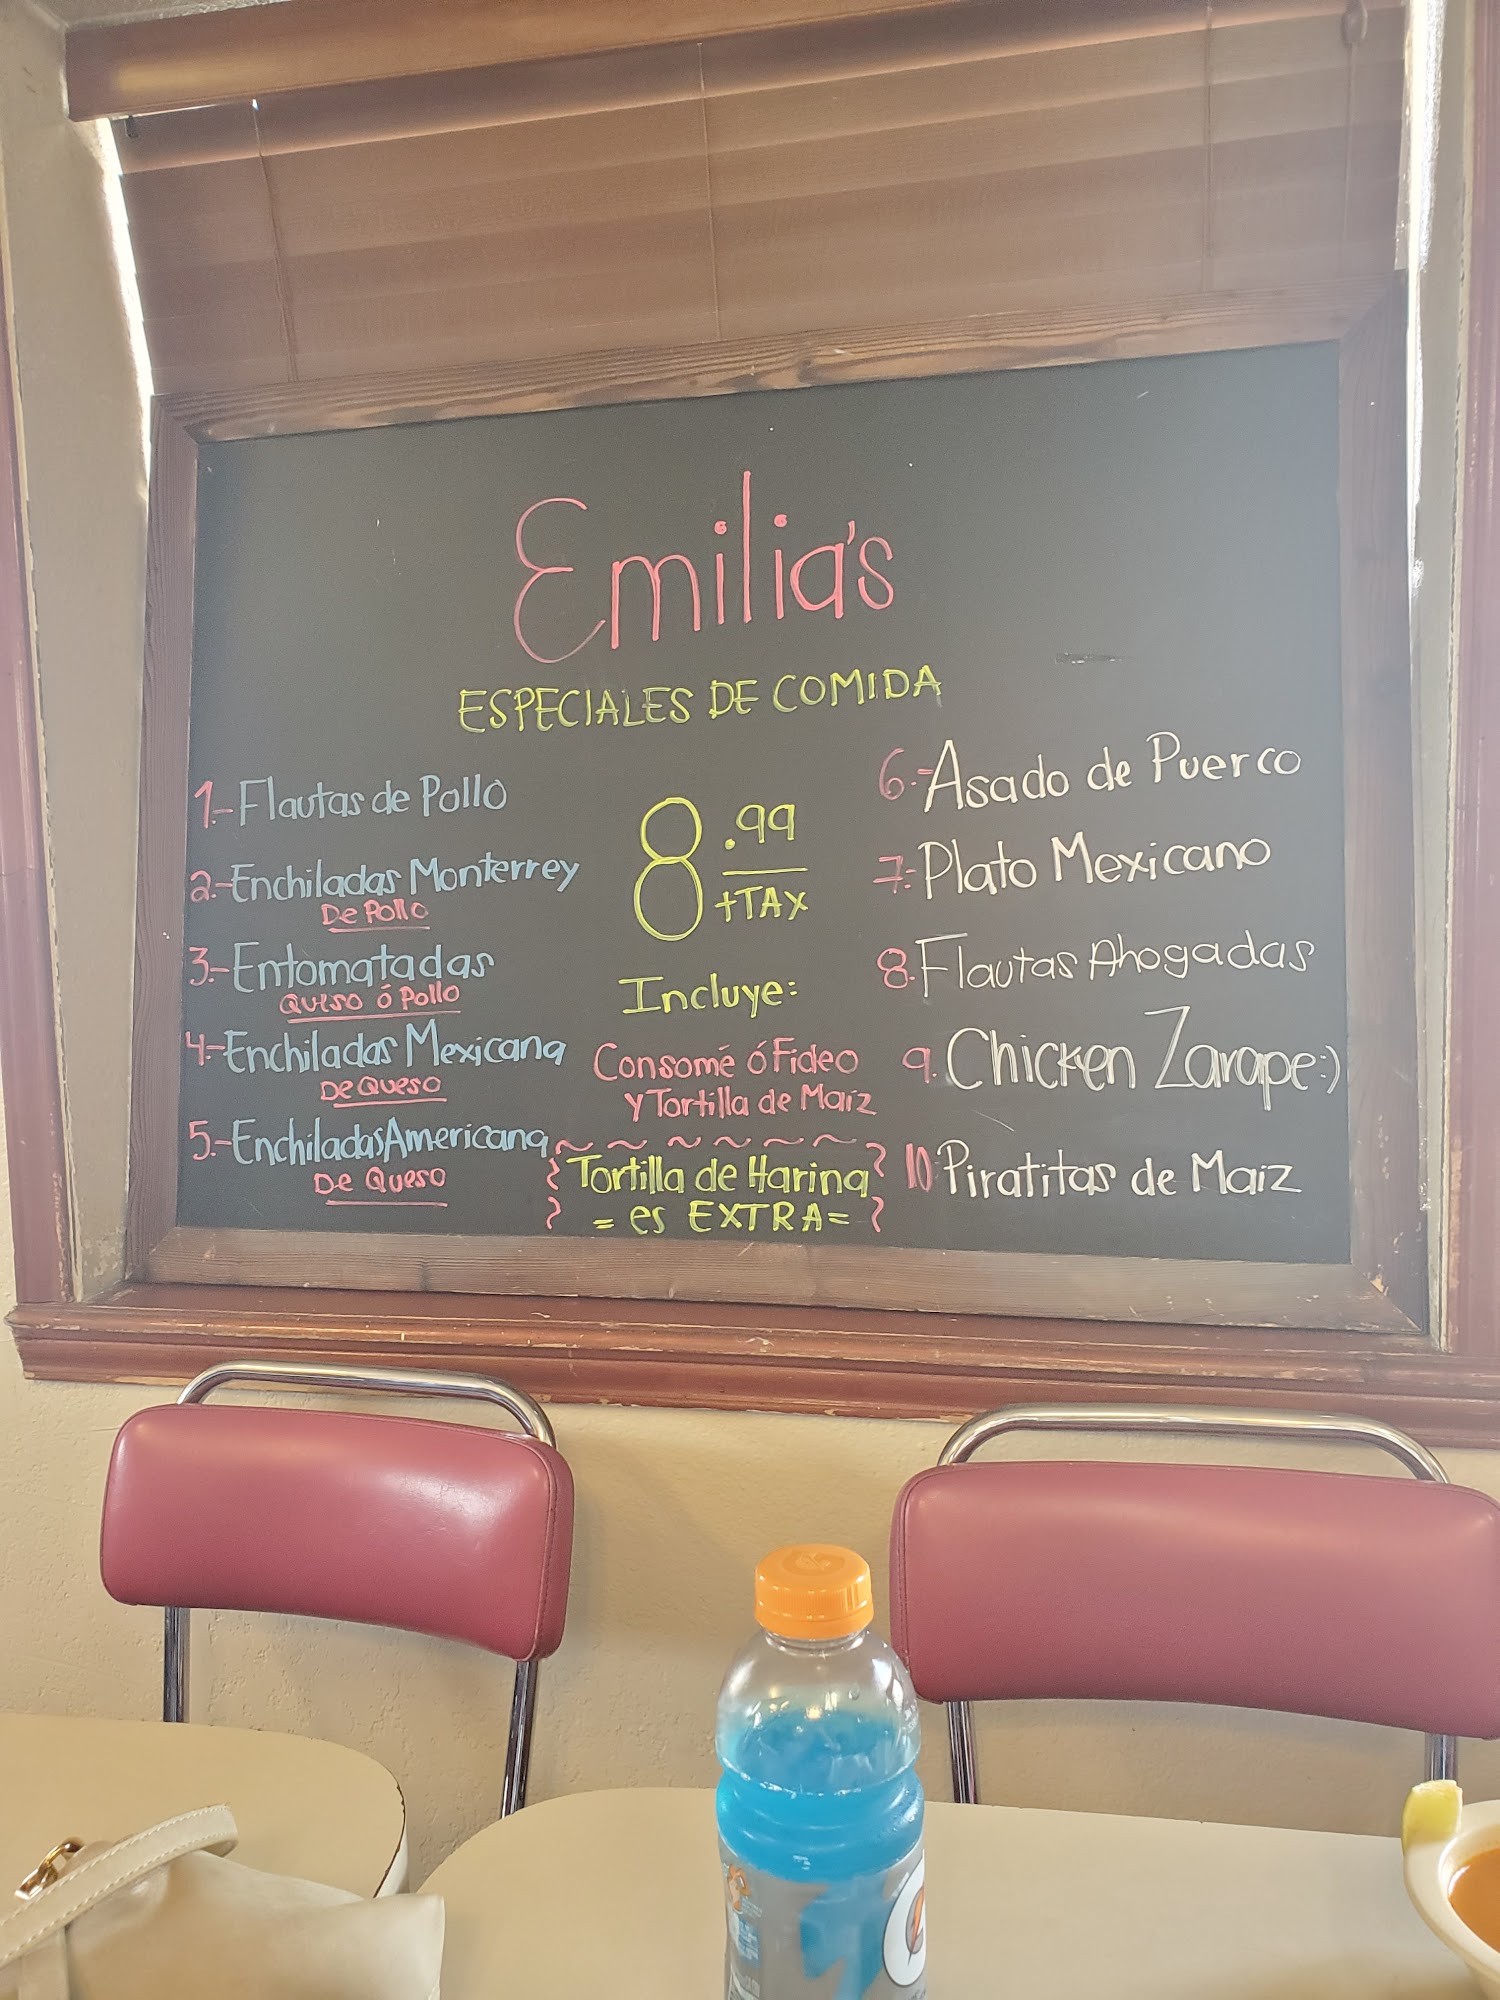 Emilia's
ESPECIALES DE COMIDA
1.- Flautas de Pollo
2.- Enchiladas Monterrey
De Pollo
3.- Entomatadas
Queso ó Pollo
4.- Enchiladas Mexicana
De Queso
5.- Enchiladas Americana
De Queso
8.99
+TAX
Incluye:
Consomé ó Fideo
y Tortilla de Maiz
Tortilla de Harina
= es EXTRA =
6.- Asado de Puerco
7.- Plato Mexicano
8. Flautas Ahogadas
9. Chicken Zarape :)
10 Piratitas de Maiz